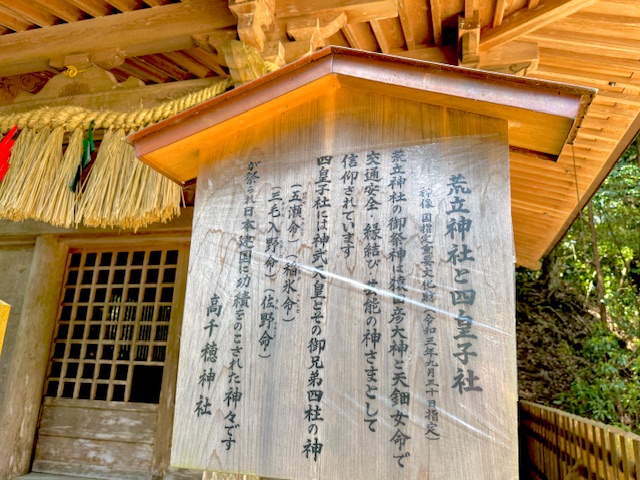 荒立神社と四皇子社
(神像 国指定重要文化財 令和三年九月三十日指定)
荒立神社の御祭神は猿田彦大神と天鈿女命で
交通安全・縁結び・芸能の神さまとして
信仰されています
四皇子社には神武天皇とその御兄弟四社の神
(五瀬命)(稲氷命)
(三毛入野命)(佐野命)
が祭られ日本建国に功績をのこされた神々です
高千穂神社